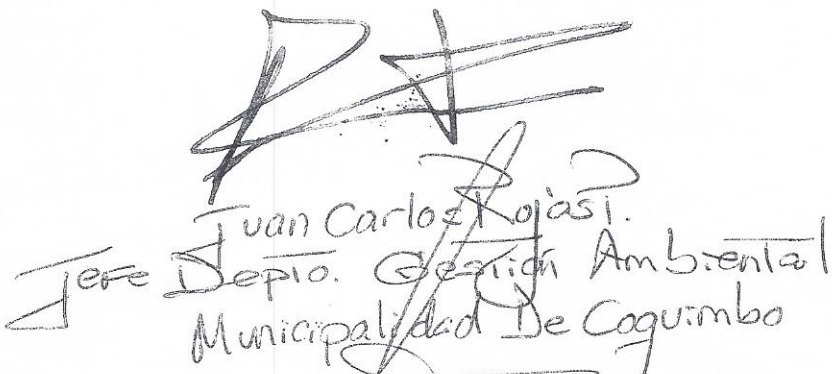 Juan Carlos Rojas P.
Jefe Depto. Gestión Ambiental
Municipalidad De Coquimbo